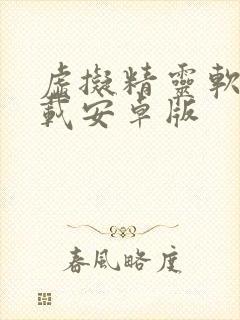 虛擬精靈軟
載安卓版
春風略度